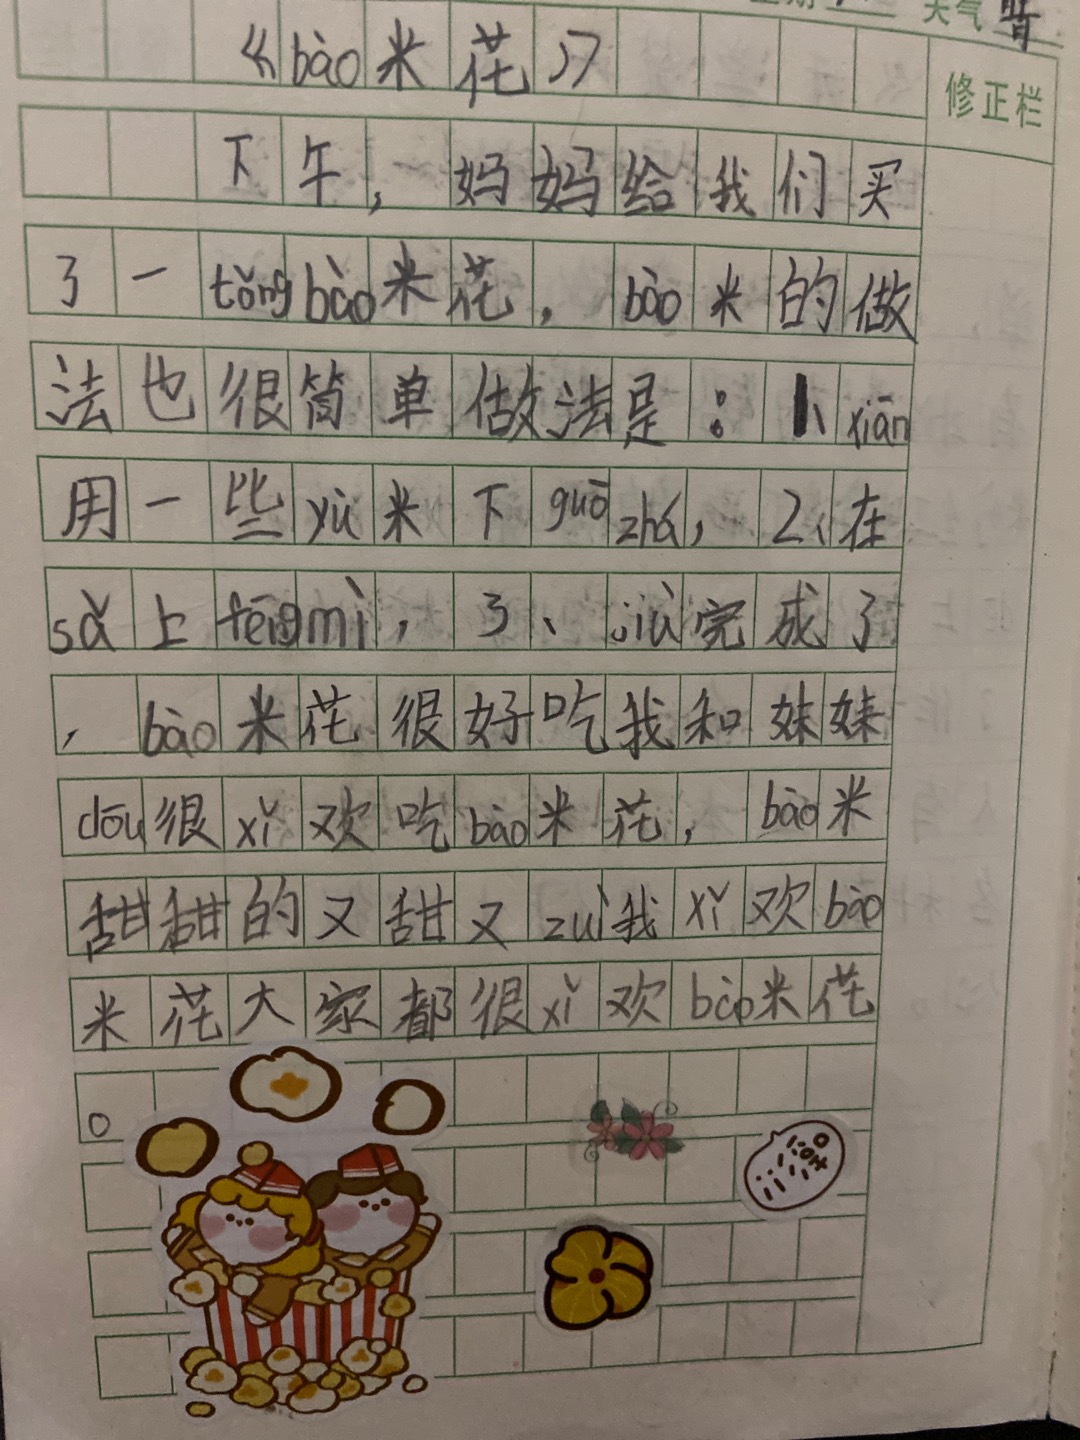 天气 晴
《bào米花》
修正栏
下午，妈妈给我们买
了一tǒngbào米花，bào米的做
法也很简单做法是：1、xiān
用一些yù米下guō zhá，2、在
sǎ上fēngmì，3、jiù完成了
，bào米花很好吃我和妹妹
dōu很xǐ欢吃bào米花，bào米
甜甜的又甜又zuì我xǐ欢bào
米花大家都很xǐ欢bào米花
。